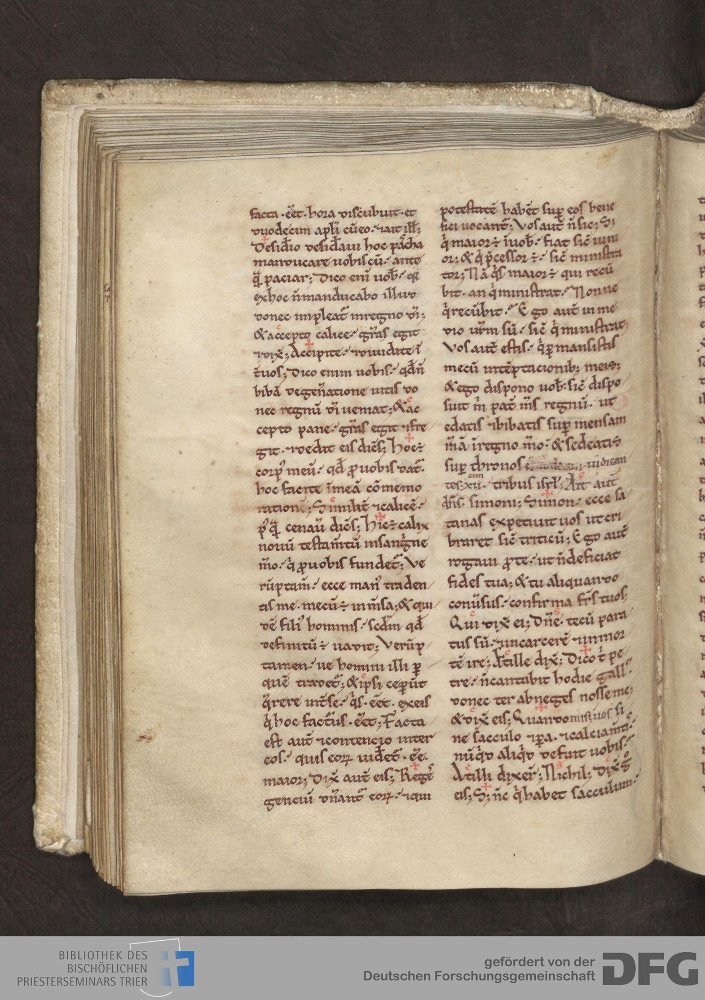 facta . eēt . hora discubuit . et
duodecim apl̄i cū eo . 7 ait ill̄ ;
Desid̾io desid̾aui hoc pascha
manducare uobiscū . ante
q̄ paciar ; Dico eni uob̾ . q̄
ex hoc n̄ manducabo illud
donec impleat̾ in regno di ;
& accepto calice . gr̄as egit
7 dix̄ ; Accipite . 7 diuidite i
t̾ uos ; Dico enim uobis . qd̄ n̄
bibā de gen̾atione uitis do
nec regnū di ueniat ; & ac
cepto pane . gr̄as egit 7 fre
git . 7 dedit eis dic̄s ; Hoc ē
corp̾ meū . qd̄ p uobis dat̾ .
hoc facite in meā cōmemo
rationē ; Similit̾ 7 calicē .
p̾q̄ cenauit dic̄s ; Hic ē calix
nouū testam̄tū in sanguine
m̄o . q̄ p uobis fundet̾ ; Ve
rūptam̄ . ecce man̾ traden
tis me . mecū ē in m̄sa ; & qui
dē fili̾ hominis . scdm̄ qd̄
definitū ē uadit ; Verūp
tamen . ue homini illi p
quē tradet̾ ; & ipsi cep̄ūt
q̄rere int̾ se . q̾s . eēt . ex eis
q̾ hoc factur̾ . eēt ; Facta
est aut̄ 7 contencio inter
eos . quis eoꝝ uidet̾ . ēe .
maior ; Dix̄ aut̄ eis ; Reges
gentiū dn̄ant̾ eoꝝ . 7 qui
potestatē habēt sup̾ eos bene
fici uocant̾ ; Vos aut̄ n̄ sic ; Sꝫ
q̾ maior ē in uob̾ . fiat sic̄ iuni
or ; & q̾ p̄cessor ē . sic̄ ministra
tor ; Nā q̾s maior ē qui recū
bit . an q̾ ministrat . Nonne
q̾ recūbit . Ego aut̄ in me
dio ur̄m sū . sic̄ q̾ ministrat
Vos aut̄ estis . q̾ p̾mansistis
mecū in tēptacionib̾ ; meis ;
& ego dispono uob̾ . sic̄ dispo
suit m̄ pat̾ m̄s regnū . ut
edatis 7 bibatis sup̾ mensam
m̄ā in regno m̄o . & sedeatis
sup̾ thronos iudican
tes . xii . tribus isrl̄ ; Ait aut̄
dn̄s . simoni ; Simon . ecce sa
tanas expetiuit uos ut cri
braret sic̄ triticū ; Ego aut̄
rogaui p te . ut n̄ deficiat
fides tua ; & tu aliquando
conu̾sus . confirma fr̄s tuos
Qui dix̄ ei ; Dn̄e . tecū para
tus sū . 7 in carcerē 7 in mor
tē ire ; At ille dix̄ ; Dico t̾ pe
tre . n̄ cantabit hodie gall̾ .
donec ter abneges nosse me ;
& dix̄ eis ; Quando misi uos si
ne sacculo 7 pera . 7 calciam̄tis .
nūq̾d aliq̾d defuit uobis .
At illi dixer̄ ; Nichil ; Dix̄ g̾
eis ; Sꝫ n̄c q̾ habet sacculum .
BIBLIOTHEK DES
BISCHÖFLICHEN
PRIESTERSEMINARS TRIER
gefördert von der
Deutschen Forschungsgemeinschaft
DFG